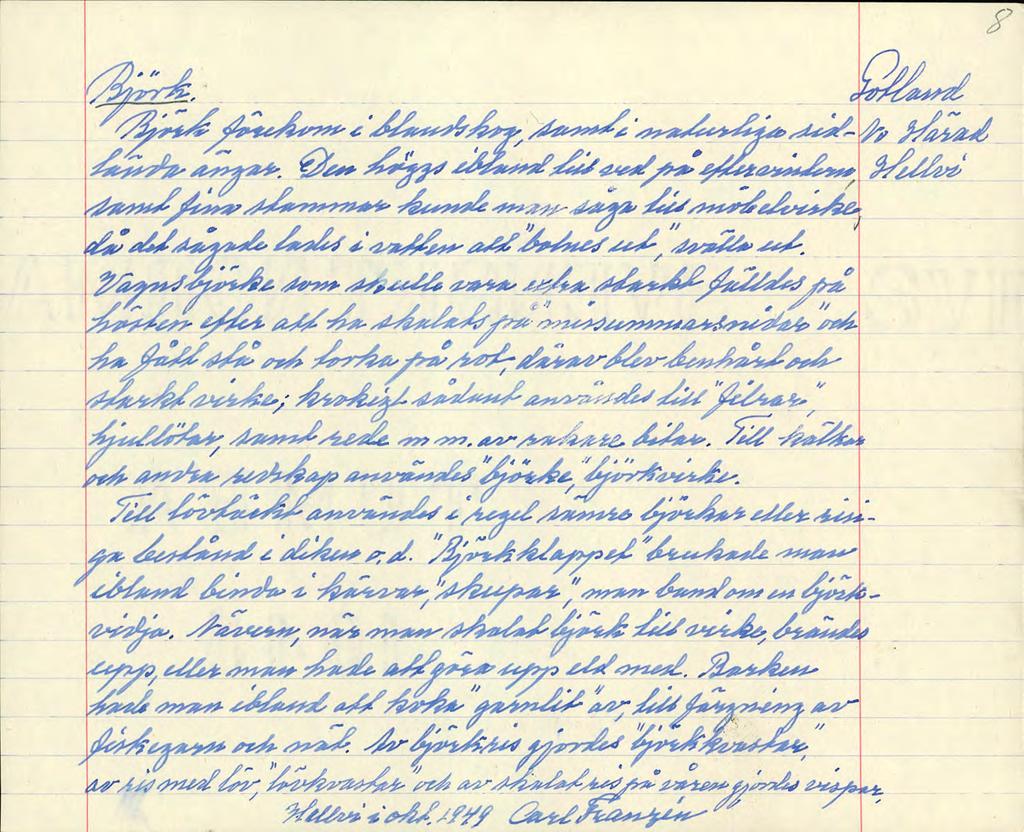 8
Björk.
Gotland
Björk förekom i blandskog, samt i naturliga sid-
No Härad
lända ängar. Den höggs ibland till ved på eftervintern,
Hellvi
samt fina stammar kunde man såga till möbelvirke,
då det sågade lades i vatten att "botnes ut", svälla ut.
Vagnsbjörke som skulle vara extra starkt fälldes på
hösten efter att ha skalats på "missummarsnidar" och
ha fått stå och torka på rot, därav blev benhårt och
starkt virke; krokigt sådant användes till "filrar",
hjullötar, samt rede m m. av rakare bitar. Till kälkar
och andra redskap användes "björke", björkvirke.
Till lövtäckt användes i regel sämre björkar eller rin-
ga bestånd i diken o. d. "Björkklappet" brukade man
ibland binda i kärvar, "skupar", man band om en björk-
vidja. Nävern, när man skalat björk till virke, brändes
upp, eller man hade att göra upp eld med. Barken
hade man ibland att koka "garnlit" av, till färgning av
fiskegarn och nät. Av björkris gjordes "björkkvastar",
av ris med löv, "lövkvastar" och av skalat ris på våren gjordes vispar.
Hellvi i okt. 1949 Carl Franzén